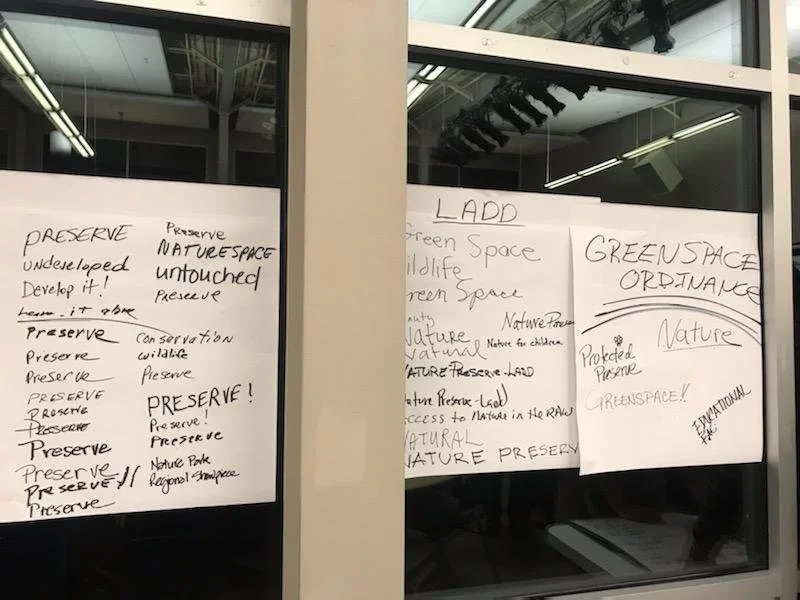 PRESERVE
undeveloped
Develop it!
Leave it alone
Preserve
Preserve
Preserve
PRESERVE
Preserve
Preserve
Preserve
Preserve
Preserve!!
Preserve
Preserve
NATURESPACE
untouched
Preserve
Conservation
wildlife
Preserve
PRESERVE!
Preserve!
Preserve
Nature Park
Regional Showpiece
LADD
Green Space
ildlife
reen Space
auty
Nature
Natural
Nature Preser
Nature for children
NATURE PRESERVE-LADD
ature Preserve-Ladd)
CCESS to NATURE in the RAW
ATURAL
NATURE PRESERV
GREENSPACE
ORDINANCE
Nature
Protected
Preserve
GREENSPACE!!
EDUCATIONAL